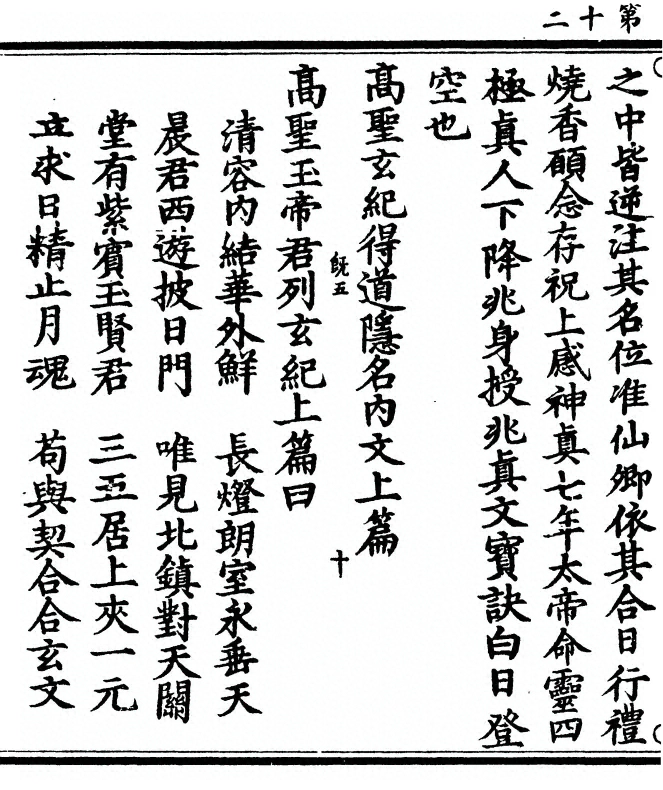 第十二
之中皆逆注其名位准仙卿依其合日行禮
燒香願念存祝上感神真七年太帝命靈四
極真人下降兆身授兆真文寶訣白日登
空也
高聖玄紀得道隱名內文上篇
既五
十
高聖玉帝君列玄紀上篇曰
清容內結華外鮮　長燈朗室永垂天
晨君西遊披日門　唯見北鎮對天關
堂有紫賓玉賢君　三五居上夾一元
並求日精止月魂　苟與契合合玄文